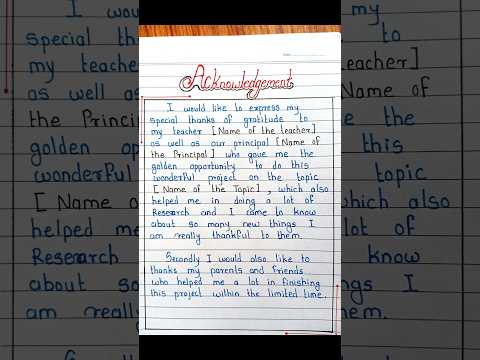 Acknowledgement
I would like to express my
special thanks of gratitude to
my teacher [Name of the teacher]
as well as our principal [Name of
the Principal] who gave me the
golden opportunity to do this
wonderful project on the topic
[Name of the Topic], which also
helped me in doing a lot of
Research and I came to know
about so many new things I
am really thankful to them.
Secondly I would also like to
thanks my parents and friends
who helped me a lot in finishing
this project within the limited time.